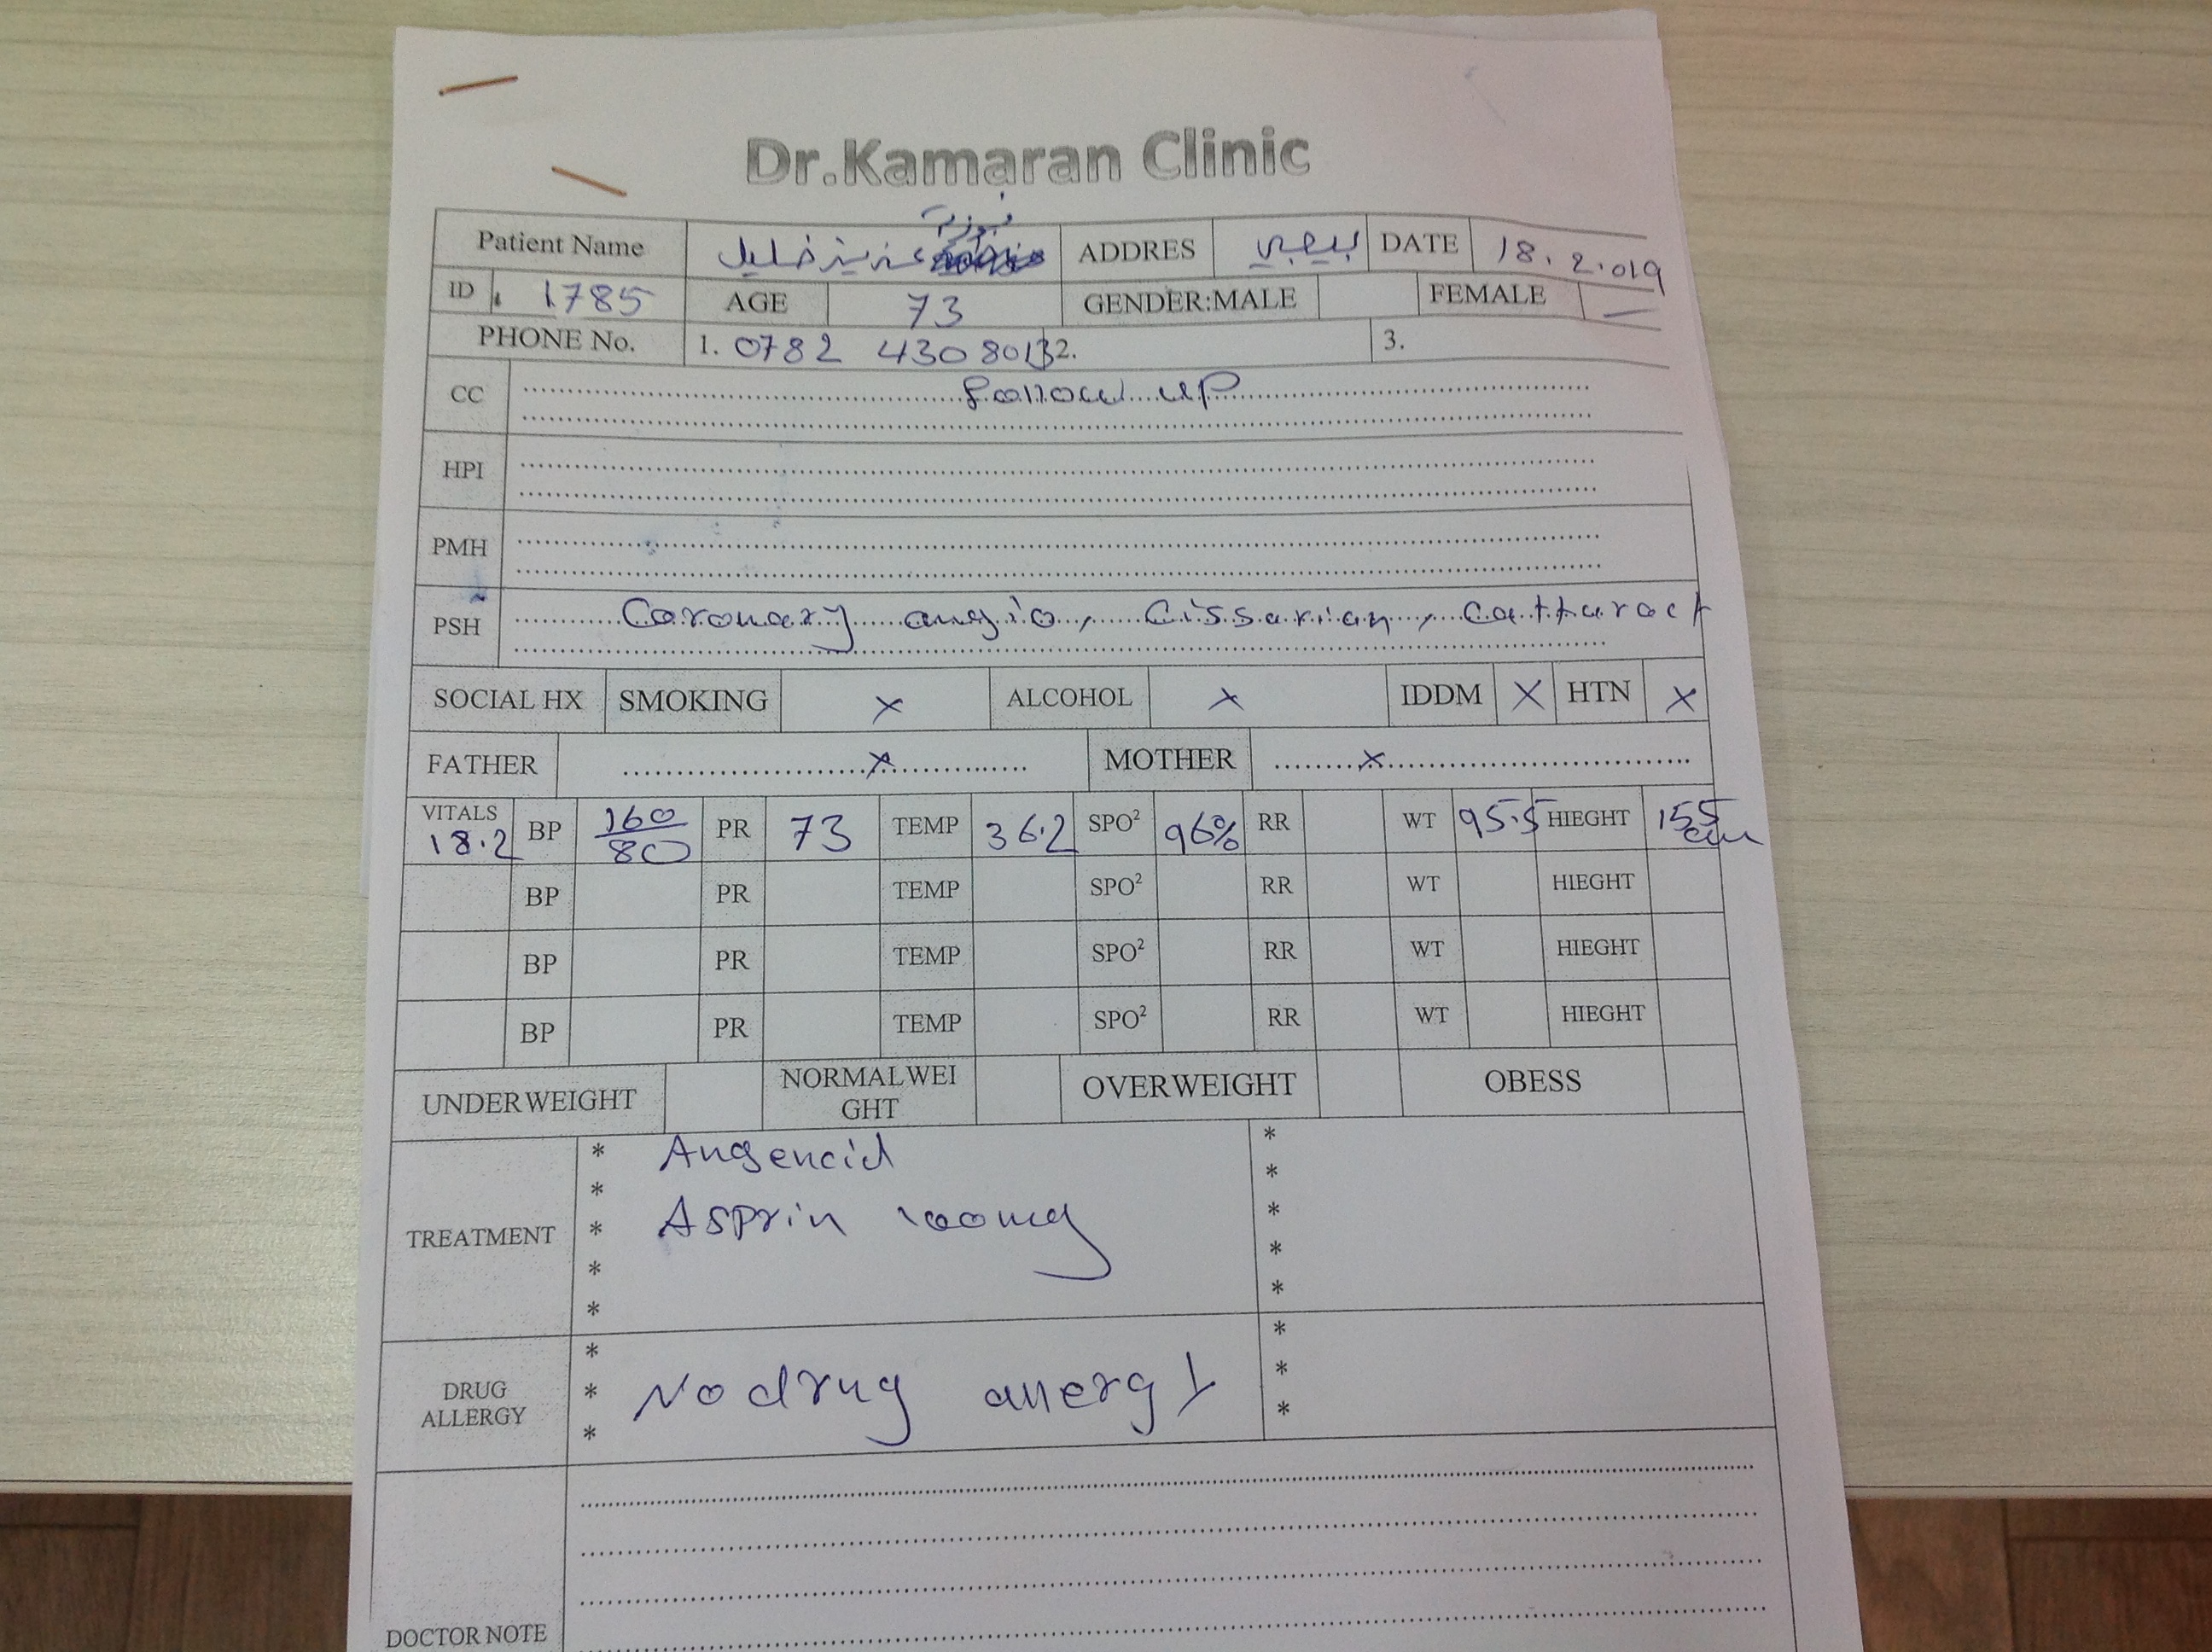 Dr.Kamaran Clinic
Patient Name فوزية عزيز خليل ADDRES بيجي DATE 18.2.019
ID 1785 AGE 73 GENDER:MALE FEMALE —
PHONE No. 1. 0782 4308013 2. 3.
CC Follow up
HPI
PMH
PSH Coronary angio, Cissarian, Cattaract
SOCIAL HX SMOKING × ALCOHOL × IDDM × HTN ×
FATHER × MOTHER ×
VITALS 18.2 BP 160/80 PR 73 TEMP 36.2 SPO² 96% RR WT 95.5 HIEGHT 155 cm
BP PR TEMP SPO² RR WT HIEGHT
BP PR TEMP SPO² RR WT HIEGHT
BP PR TEMP SPO² RR WT HIEGHT
UNDERWEIGHT NORMALWEIGHT OVERWEIGHT OBESS
TREATMENT
* Angencid *
* *
* Asprin 100mg *
* *
* *
DRUG ALLERGY
* *
* No drug allergy *
* *
DOCTOR NOTE